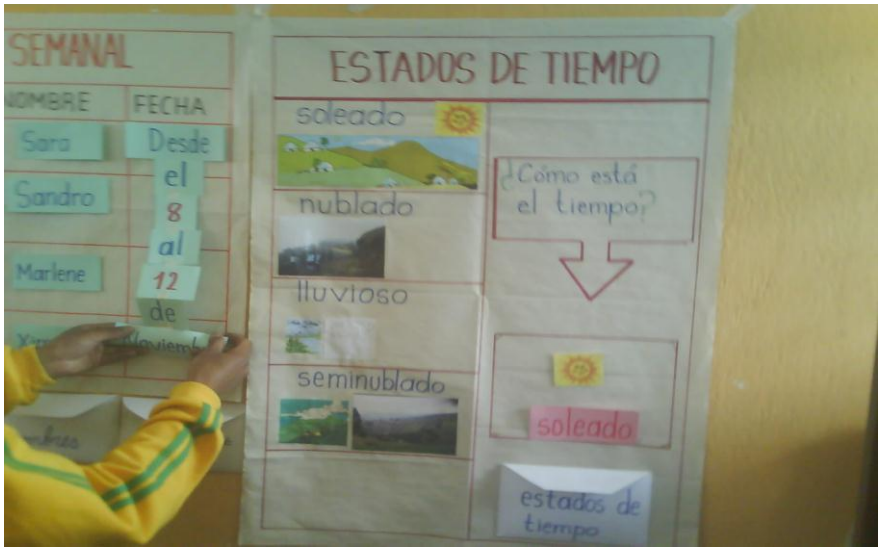 SEMANAL
NOMBRE FECHA
Sara
Sandro
Marlene
Desde
el
8
al
12
de
Noviemb
ESTADOS DE TIEMPO
soleado
nublado
lluvioso
seminublado
¿Cómo está
el tiempo?
soleado
estados de
tiempo